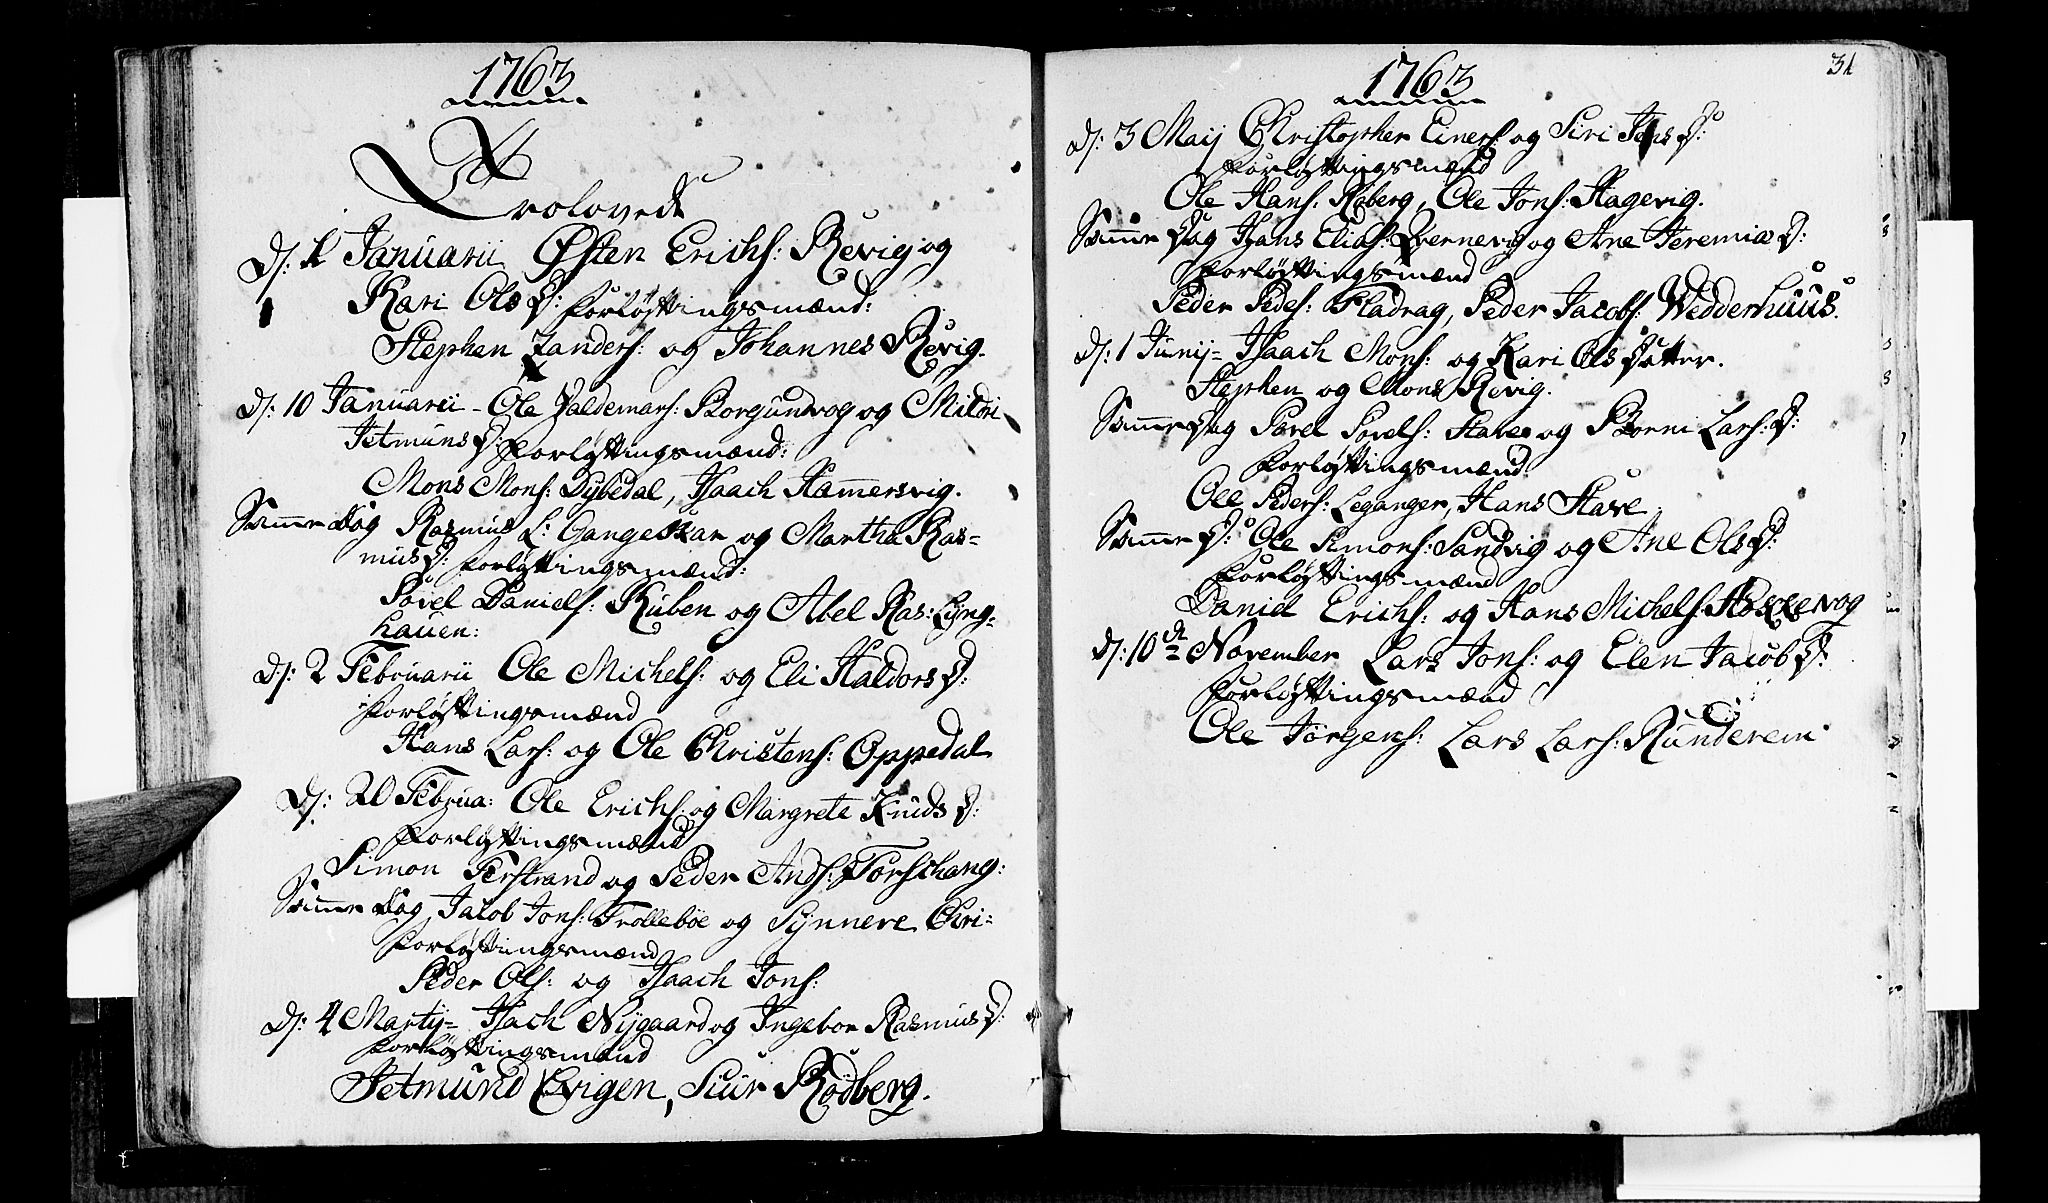 1763
Trolovede
D: 1 Januarii Østen Erichs: Revig og
Kari Ols D: Forløftingsmænd:
Stephen Zanders: og Johannes Revig.
D: 10 Januarii - Ole Valdemars: Borgundvog og Mildri
Jetmuns D: Forløftingsmænd:
Mons Mons: Dybedal, Isaach Hamersvig.
Samme Dag Rasmus L: Gangeskar og Martha Ras=
mus D: Forløftingsmænd:
Povel Daniels: Kuben og Abel Ras: Lyng=
hauen:
D: 2 Februarii Ole Michels: og Eli Haldors D:
Forløftingsmænd
Hans Lars: og Ole Christens: Oppedal
D: 20 Februa: Ole Erichs: og Margrete Knuds D:
Forløftingsmænd
Simon Ferstrand og Peder Ands: Torschang:
Samme Dag Jacob Jons: Trollebøe og Synneve Chri=
Forløftingsmænd
Peder Ols: og Isaach Jons:
D: 4 Martij= Isach Nygaard og Ingebor Rasmus D:
Forløftingsmænd
Jetmund Ervigen, Siur Rødberg.
1763
31
D: 3 Maij Christopher Einers: og Siri Jens D:
Forløftingsmænd
Ole Hans: Roberg, Ole Jons: Hagevig.
Samme Dag Hans Elias: Qvernevig og Ane Jeremiæ D:
Forløftingsmænd
Peder Peders: Fladrag, Peder Jacobs: Wedderhuus.
D: 1 Junij= Isaach Mons: og Kari Ols Datter.
Stephen og Mons Revig.
Samme Dag Povel Povels: Stave og Borni Lars: D:
Forløftingsmænd
Ole Peders: Leganger, Hans Stave
Samme D: Ole Simons: Sandvig og Ane Ols D:
Forløftingsmænd
Daniel Erichs: og Hans Michels:
D: 10de November Lars Jons: og Elen Jacob D:
Forløftingsmænd
Ole Jørgens: Lars Lars: Runderem